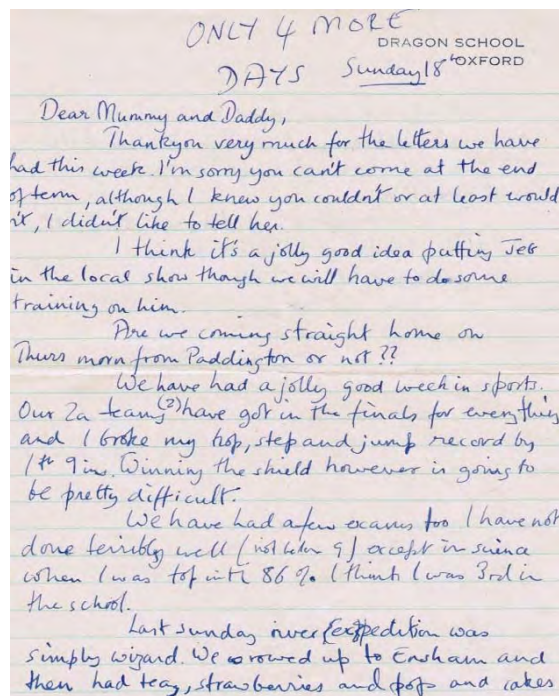 ONLY 4 MORE
DRAGON SCHOOL
OXFORD
DAYS Sunday 18th
Dear Mummy and Daddy,
Thankyou very much for the letters we have
had this week. I'm sorry you can't come at the end
of term, although I knew you couldn't or at least would
n't, I didn't like to tell her.
I think it's a jolly good idea putting Jeb
in the local show though we will have to do some
training on him.
Are we coming straight home on
Thurs morn from Paddington or not??
We have had a jolly good week in sports.
Our 2a teams (2) have got in the finals for everything
and I broke my hop, step and jump record by
1 ft 9 ins. Winning the shield however is going to
be pretty difficult.
We have had a few exams too I have not
done terribly well (not below 9) except in science
when I was top with 86%. I think I was 3rd in
the school.
Last Sunday river expedition was
simply wizard. We rowed up to Ensham and
then had tea, strawberries and pop and cakes